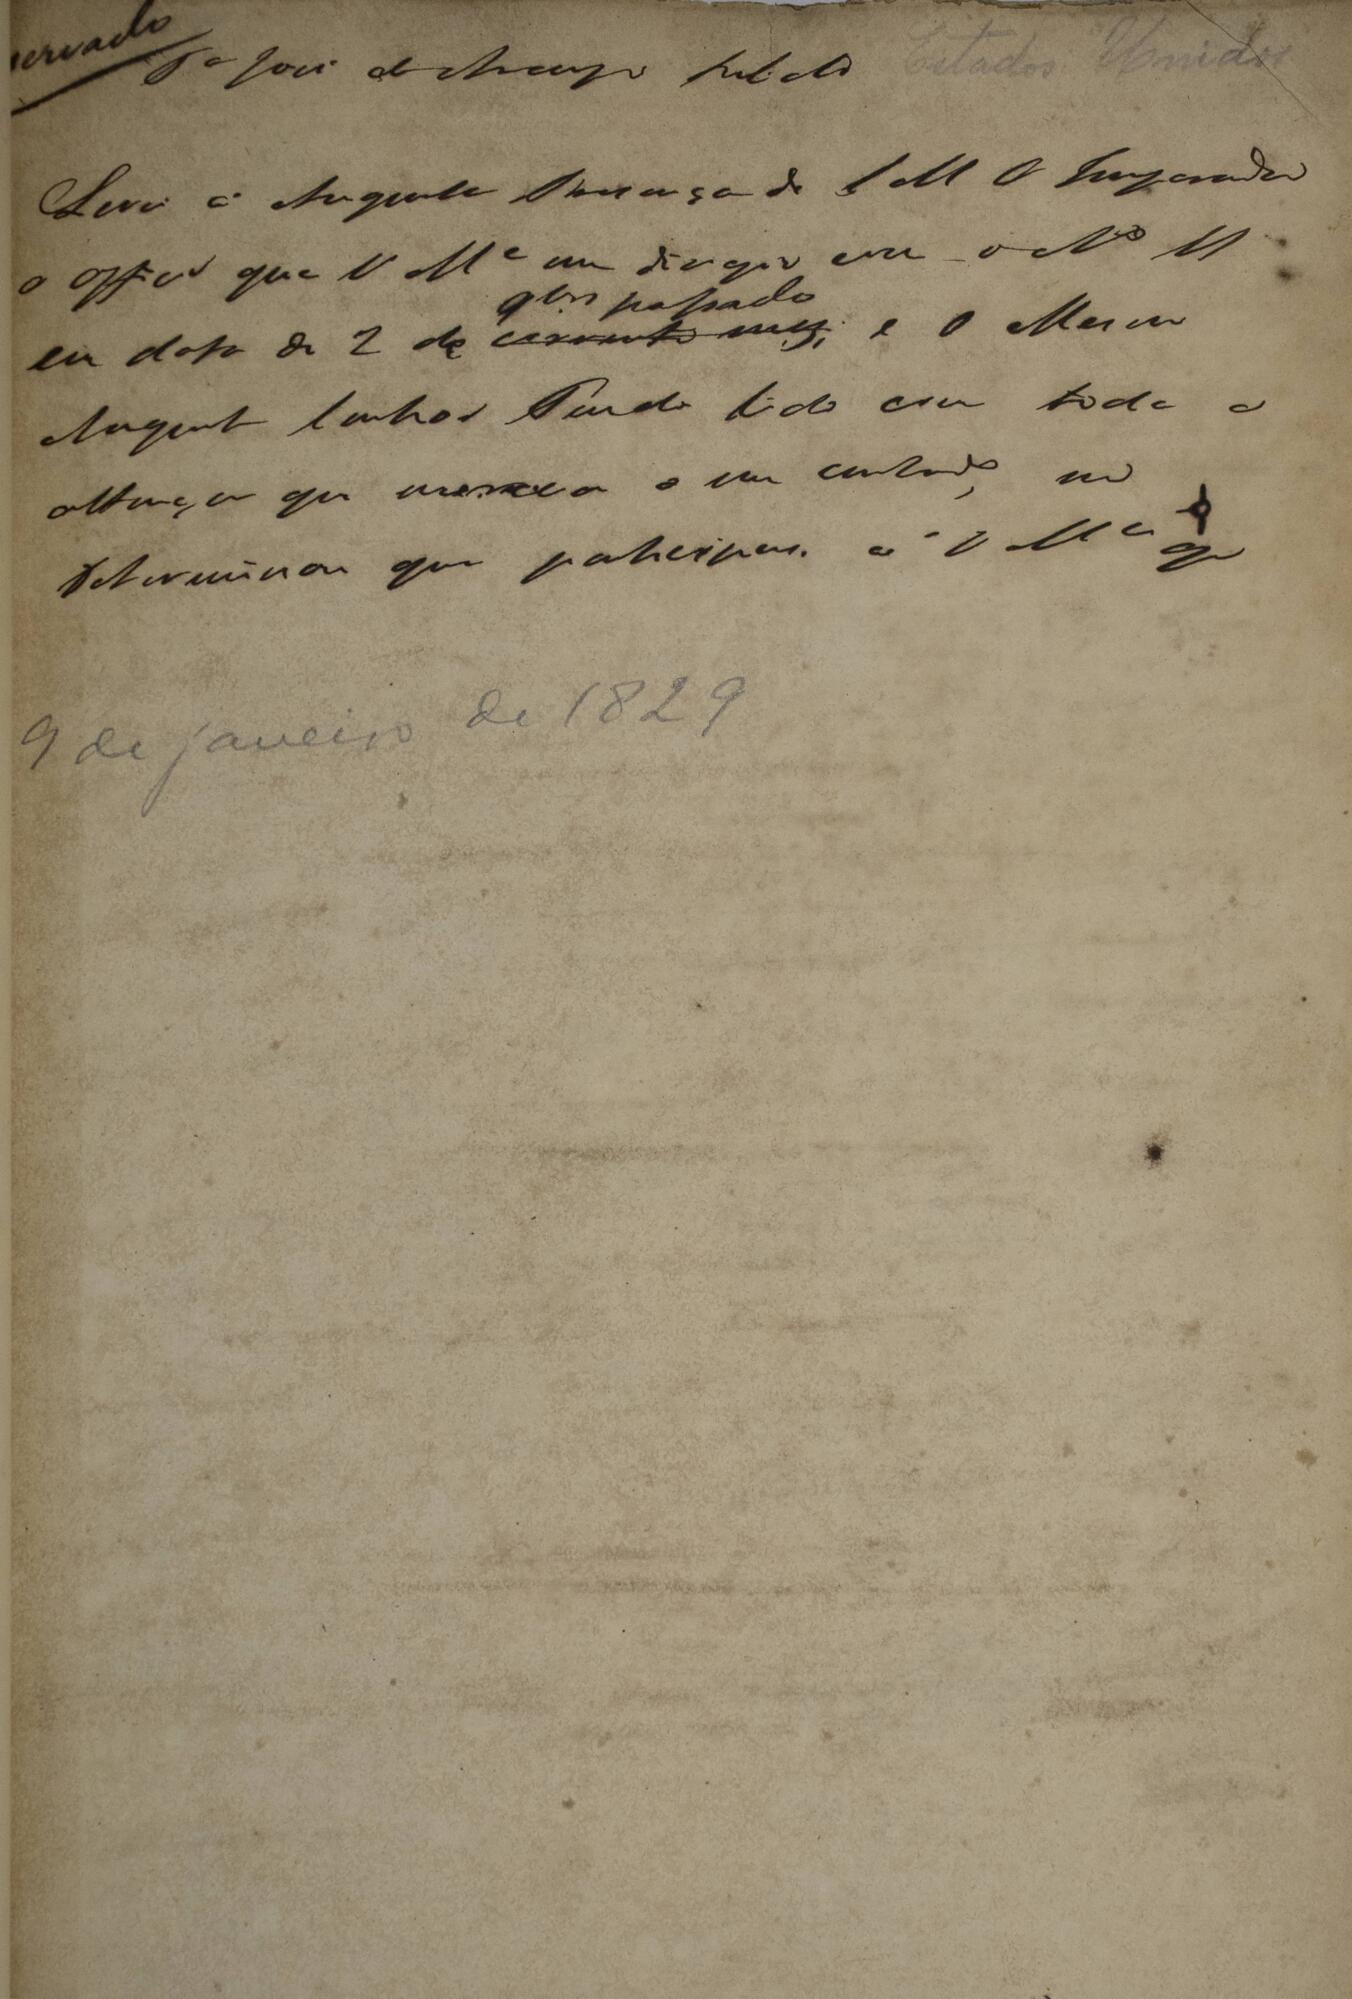 servado
Pa José de Araujo Ribeiro Estados Unidos
Levei á Augusta Presença de S M O Imperador
o officio que V Mce me dirigio com o No 11
em data de 2 de corrente mez, e O Mesmo
9bro passado
Augusto Senhor Tendo lido com toda a
attenção que merecia o seu contudo, me
Determinou que participasse a V Mce que
9 de janeiro de 1829